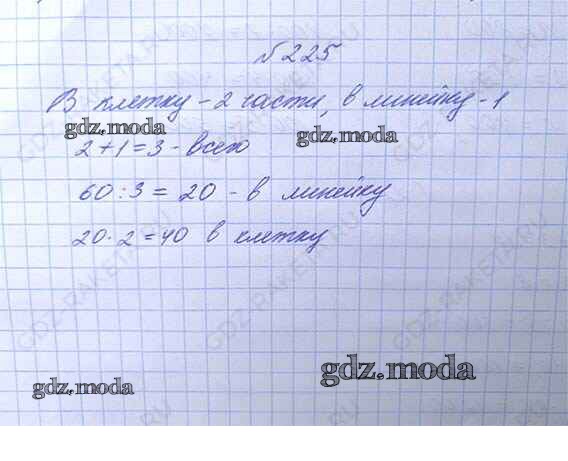 №225
В клетку - 2 части, в линейку - 1
gdz.moda
gdz.moda
2+1=3 - всего
60:3=20 - в линейку
20·2=40 в клетку
gdz.moda
gdz.moda